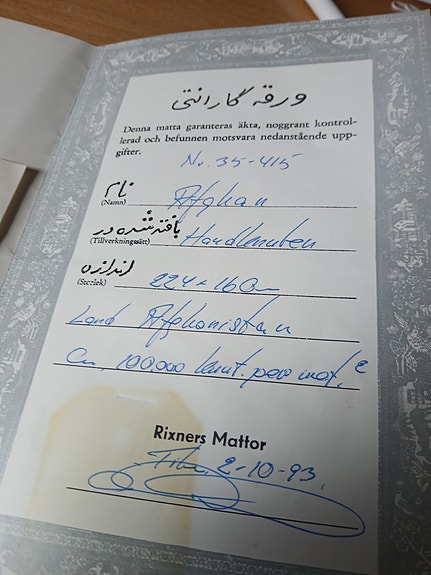 ورقه گارانتی
Denna matta garanteras äkta, noggrant kontrol-
lerad och befunnen motsvara nedanstående upp-
gifter.
Nr. 35-415
نام
(Namn) Afghan
بافته شده در
(Tillverkningssätt) Handknuten
اندازه
(Storlek) 224 x 160
Land Afghanistan
Ca, 100.000 knut. per mat.²
Rixners Mattor
2-10-93.